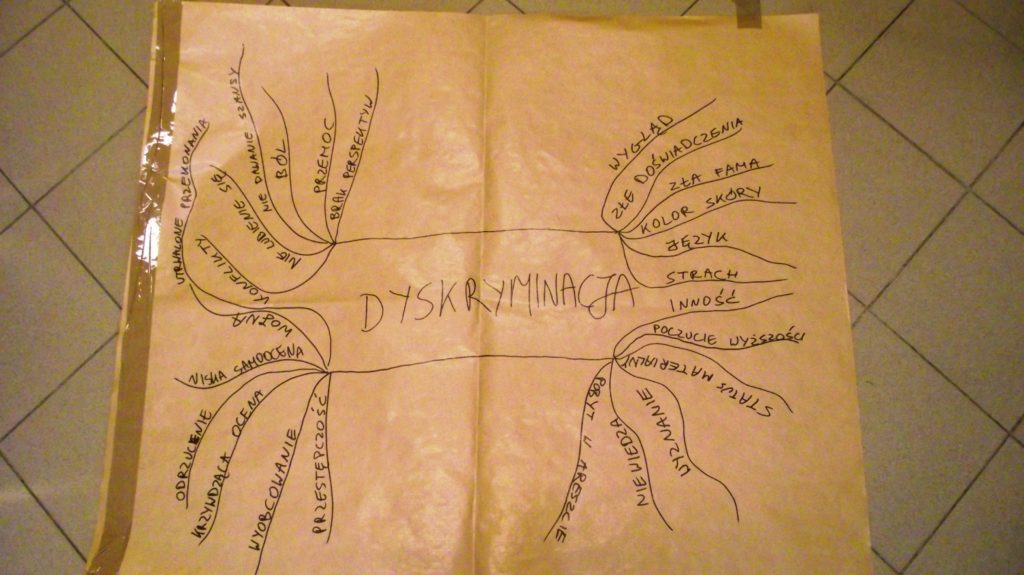 DYSKRYMINACJA
UTRWALONE PRZEKONANIA
NIE LUBIENIE SIĘ
NIE DAWANIE SZANSY
BÓL
PRZEMOC
BRAK PERSPEKTYW
KONFLIKTY
WOJNA
NISKA SAMOOCENA
ODRZUCENIE
KRZYWDZĄCA OCENA
WYOBCOWANIE
PRZESTĘPCZOŚĆ
WYGLĄD
ZŁE DOŚWIADCZENIA
ZŁA FAMA
KOLOR SKÓRY
JĘZYK
STRACH
INNOŚĆ
POCZUCIE WYŻSZOŚCI
STATUS MATERIALNY
WYZNANIE
NIEWIEDZA
POBYT W ARESZCIE